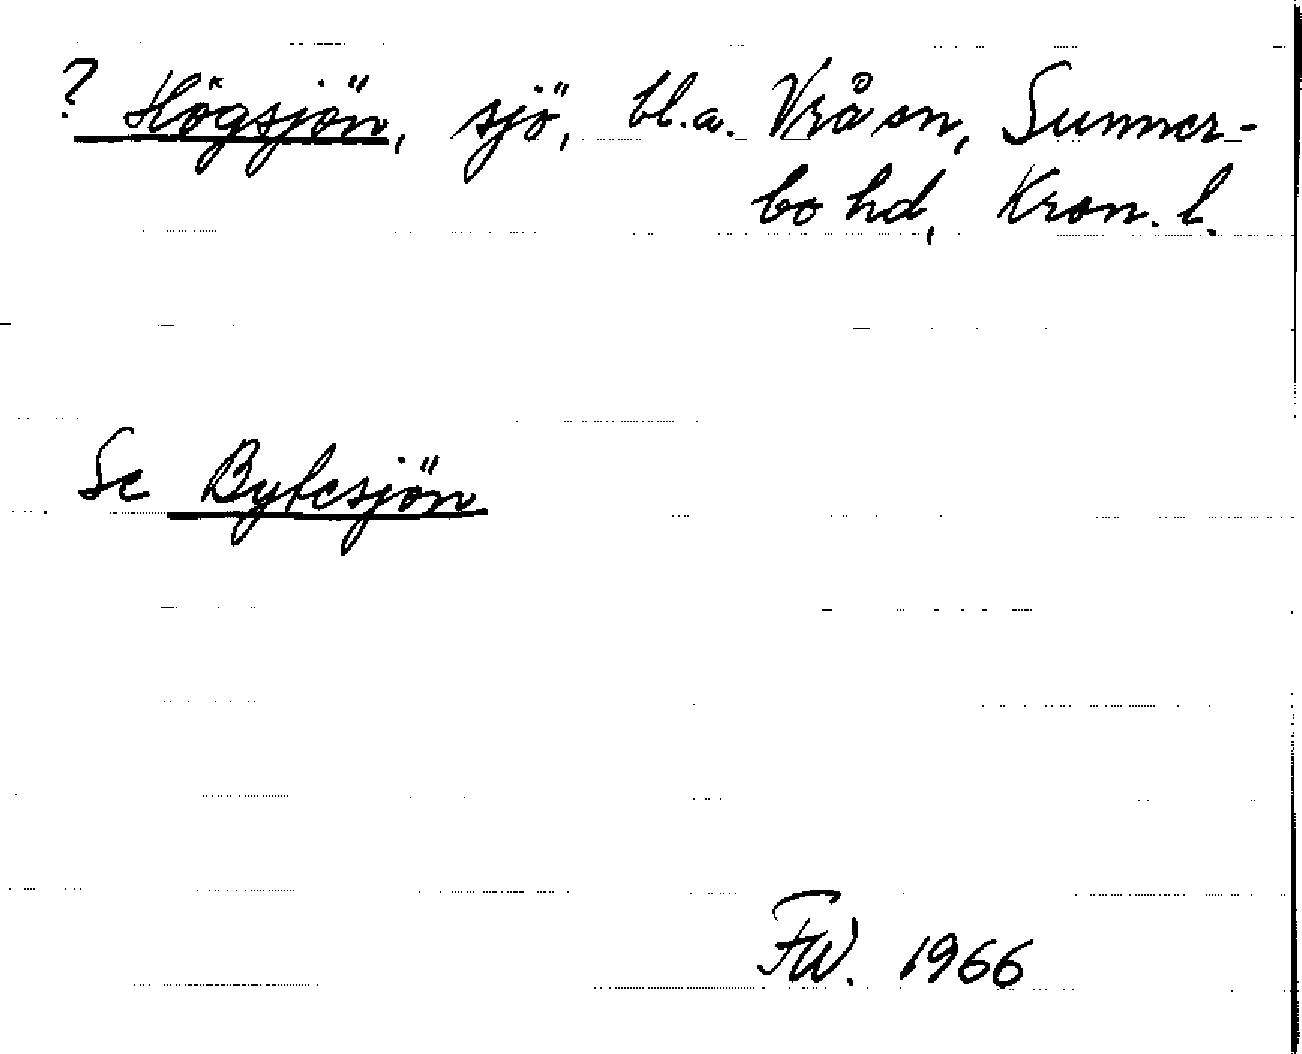 ? Högsjön, sjö, bl.a. Vrå sn, Sunner-
bo hd, Kron. l.
Se Bytesjön
FW. 1966